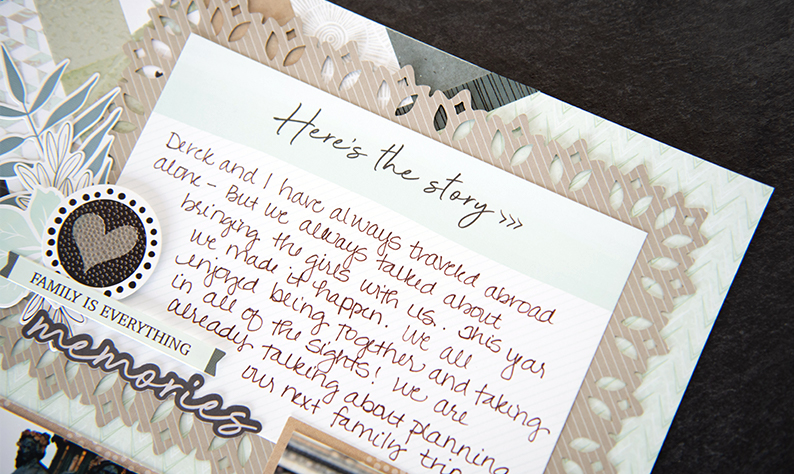 Here's the story >>>
Derek and I have always traveled abroad
alone - But we always talked about
bringing the girls with us. This year
we made it happen. We all
enjoyed being together and taking
in all of the sights! We are
already talking about planning
our next family trip
FAMILY IS EVERYTHING
memories